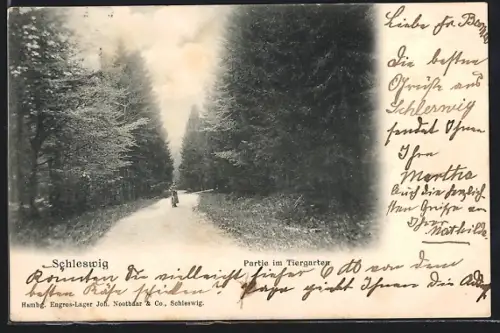 Liebe Fr
Die besten
Grüße aus
Schleswig
sendet Ihnen
Ihre
Martha
Auch die herzlich-
sten Grüße an
Ihre Mathilde.
Schleswig
Partie im Tiergarten
Könnten Sie vielleicht hieher 6 von dem
besten Käse schicken? giebt Ihnen die
Hambg. Engros-Lager Joh. Nootbaar & Co., Schleswig.